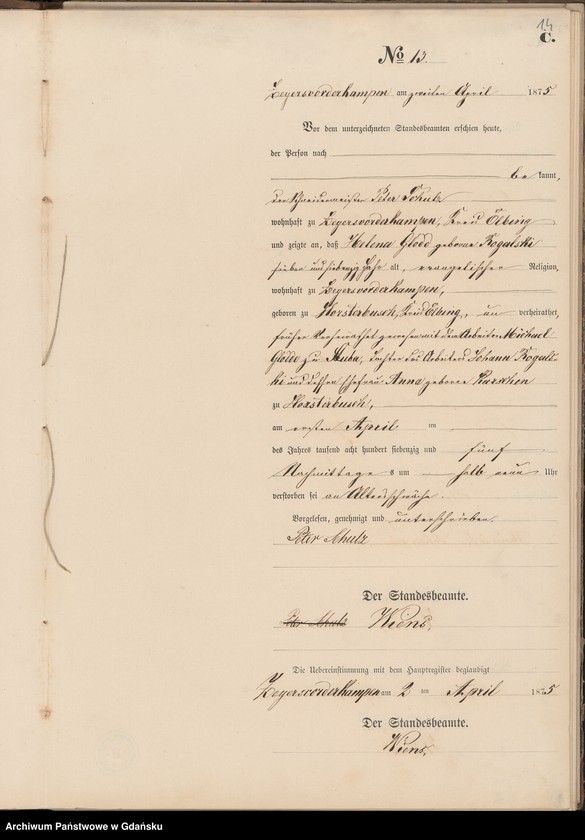 14
C.
No 13.
Zeyersvorderkampen am zweiten April 1875
Vor dem unterzeichneten Standesbeamten erschien heute,
der Person nach
be kannt,
der Schneidermeister Peter Schulz
wohnhaft zu Zeyersvorderkampen, Kreis Elbing
und zeigte an, daß Helena Glodd geborne Rogalski
sieben und siebenzig Jahr alt, evangelischer Religion,
wohnhaft zu Zeyersvorderkampen,
geboren zu Horsterbusch, Kreis Elbing, un verheirathet,
früher verheirathet gewesen mit dem Arbeiter Michael
Glodde zu Stuba, Tochter des Arbeiters Johann Rogals-
ki und dessen Ehefrau Anna geborne
zu Horsterbusch,
am ersten April
des Jahres tausend acht hundert siebenzig und fünf
Nachmittags um halb neun Uhr
verstorben sei an Altersschwäche.
Vorgelesen, genehmigt und unterschrieben.
Peter Schulz
Der Standesbeamte.
Wiens.
Die Uebereinstimmung mit dem Hauptregister beglaubigt
Zeyersvorderkampen am 2 ten April 1875
Der Standesbeamte.
Wiens.
Archiwum Państwowe w Gdańsku